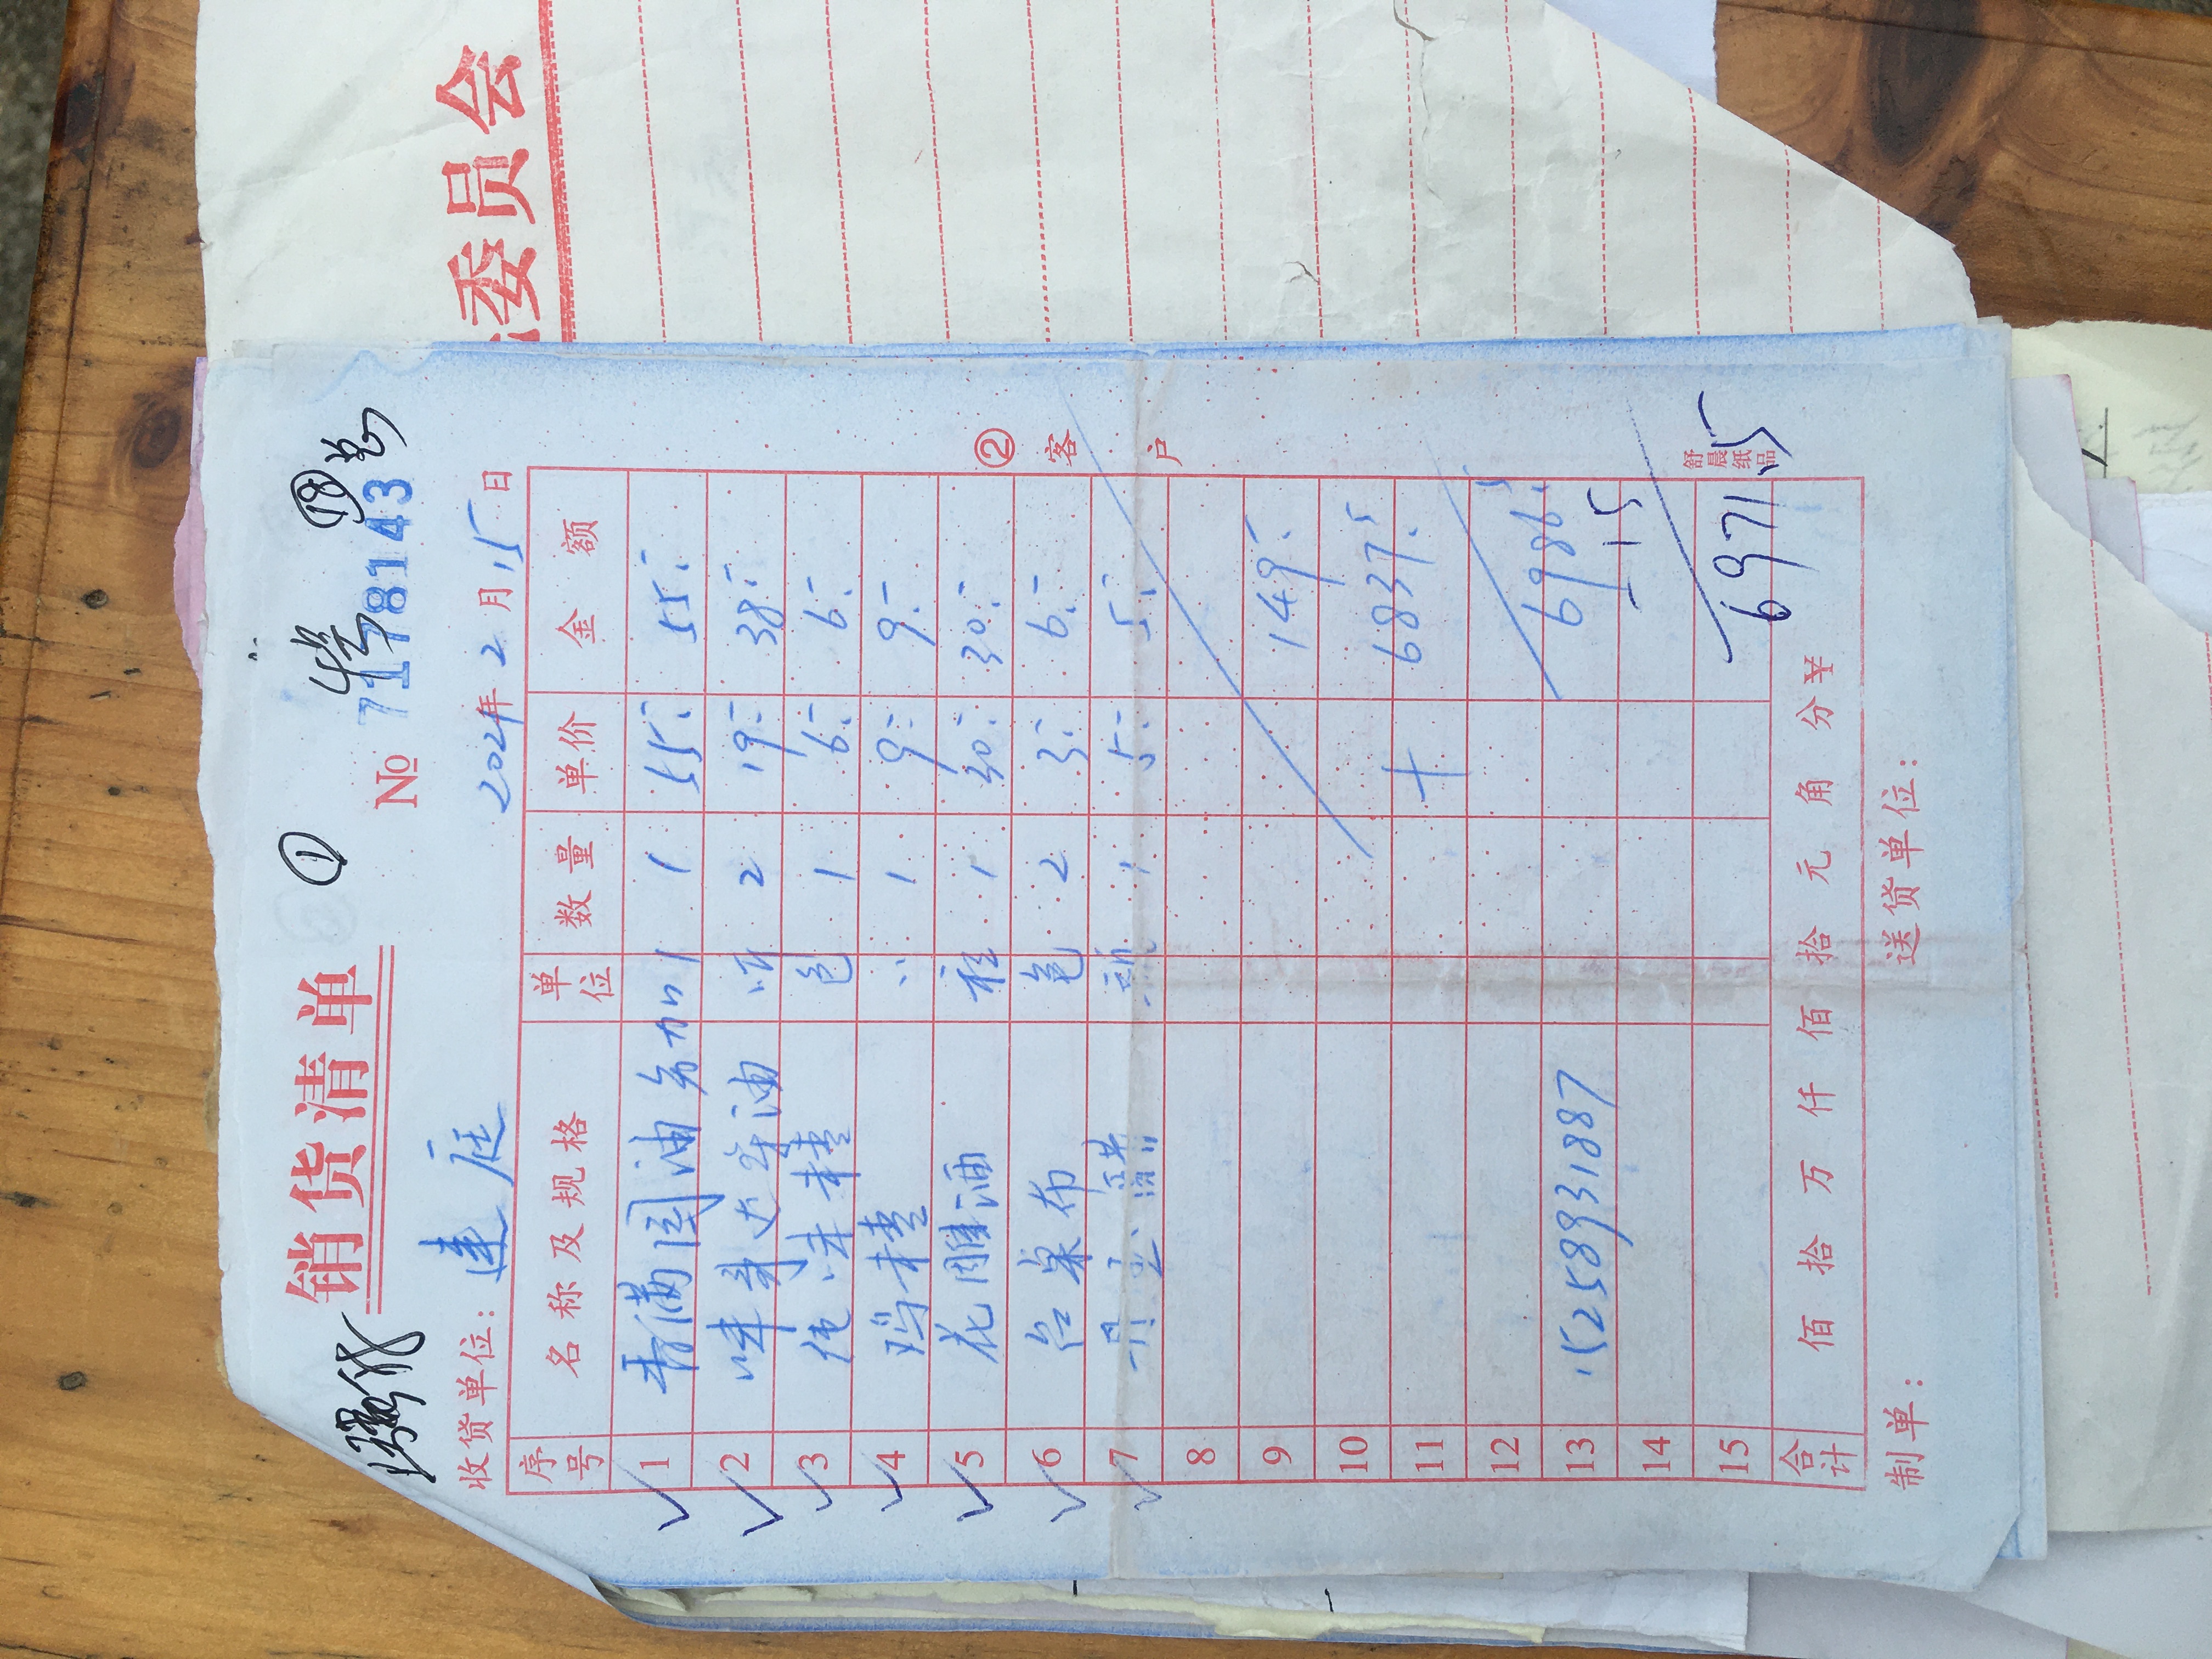 销货清单 ① ⑱
№ 7178143
委员会
收货单位: 建庭 2021年 2月 15日
序号 名称及规格 单位 数量 单价 金额
1 香满园油 1 55.- 55.-
2 味事达生油 2 19.- 38.-
3 纯味精 包 1 6.- 6.-
4 鸡精 〃 1 9.- 9.-
5 花雕酒 1 30.- 30.-
6 台桌布 包 2 3.- 6.-
7 丹玉醋 瓶 1 5.- 5.-
8
9 149.-
10
+ 6837.5
11
12
6986.5
13 15258931887
-15
14
15
6971.5
合计 佰 拾 万 仟 佰 拾 元 角 分 ¥
制单: 送货单位:
②客户
舒晨纸品